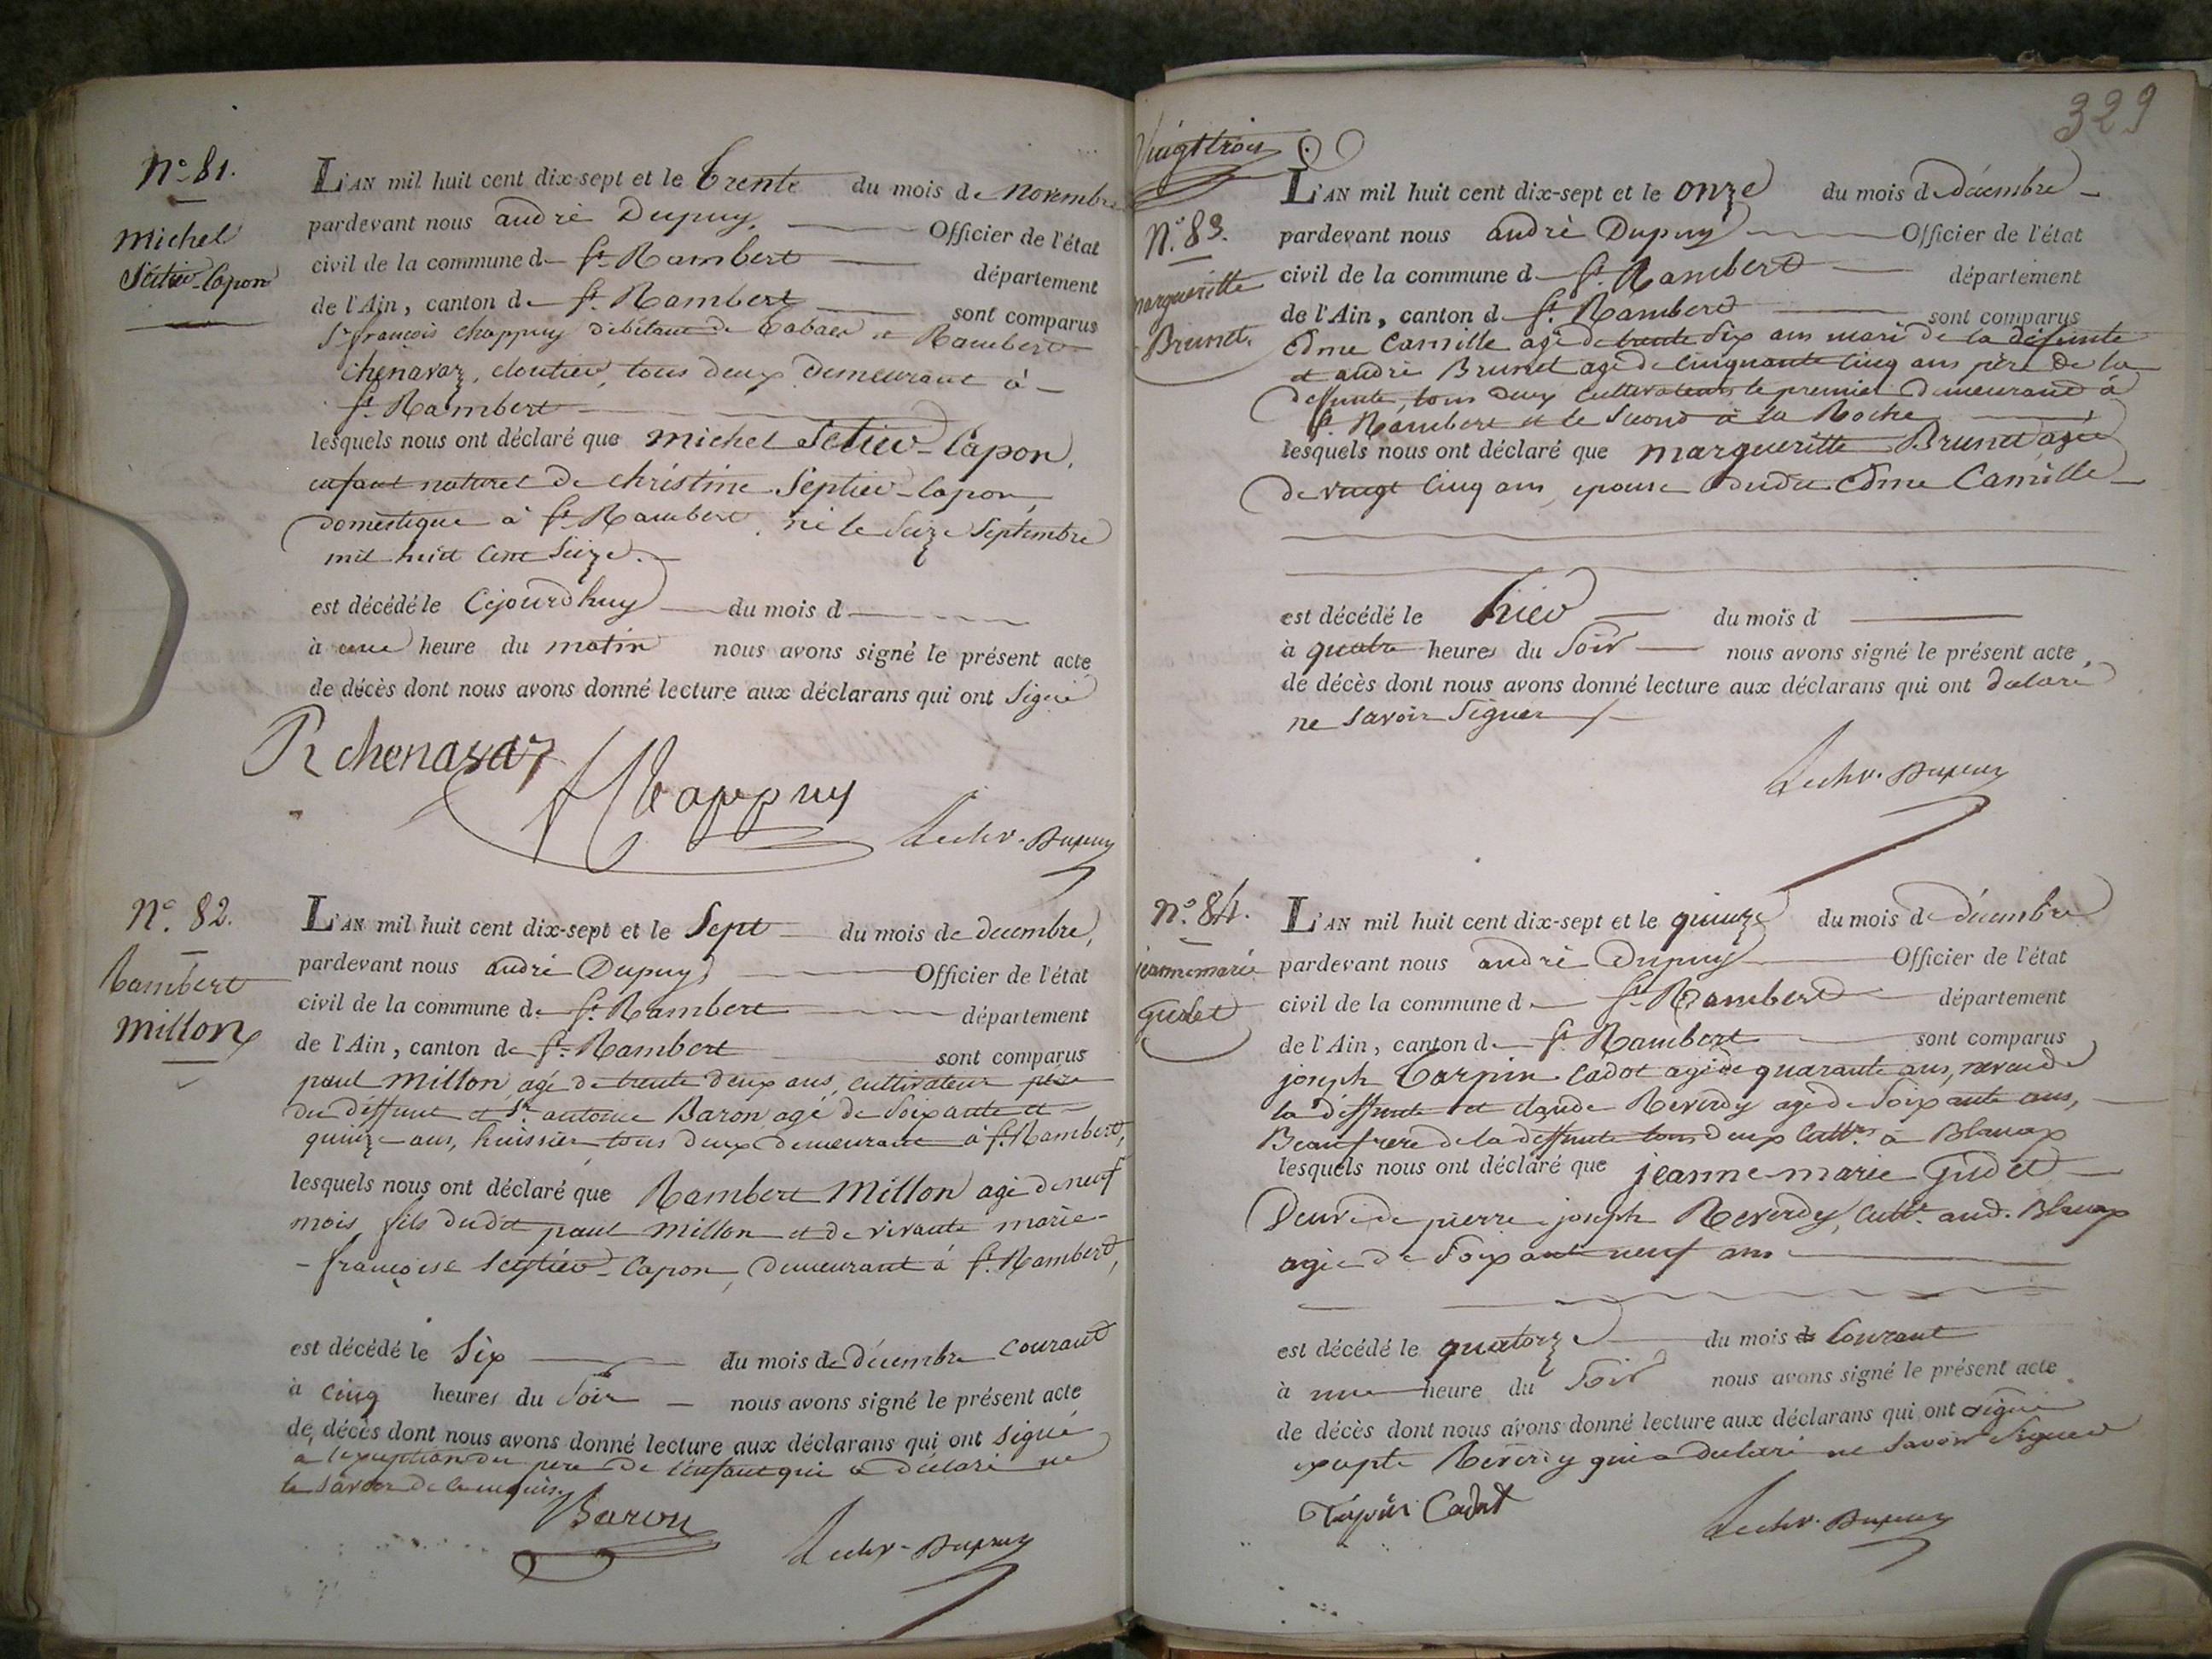 N.° 81.
Michel
Sétier-Capon
L'AN mil huit cent dix-sept et le trente du mois de novembre
pardevant nous andré Dupuy, Officier de l'état
civil de la commune de St. Rambert département
de l'Ain, canton de St. Rambert sont comparus
Sr. françois chappuy débitant de tabacs et Rambert
chenavaz, cloutier, tous deux demeurant à
St. Rambert
lesquels nous ont déclaré que michel Setier-Capon,
enfant naturel de christine Septier-Capon,
domestique à St. Rambert, né le seize Septembre
mil huit cent seize.
est décédé le Cejourdhuy du mois d
à une heure du matin nous avons signé le présent acte
de décès dont nous avons donné lecture aux déclarans qui ont signé
R chenavaz
Chappuy
Dupuy
N.° 82.
Rambert
Millon
L'AN mil huit cent dix-sept et le Sept du mois de decembre,
pardevant nous andré Dupuy, Officier de l'état
civil de la commune de St. Rambert département
de l'Ain, canton de St. Rambert sont comparus
paul Millon, agé de trente deux ans, cultivateur père
du deffunt et Sr. antoine Baron agé de soixante et
quinze ans, huissier, tous deux demeurant à St. Rambert,
lesquels nous ont déclaré que Rambert Millon agé de neuf
mois fils dudit paul Millon et de vivante marie-
-françoise Septier-Capon, demeurant à St. Rambert,
est décédé le Six du mois de décembre courant
à cinq heures du Soir nous avons signé le présent acte
de décès dont nous avons donné lecture aux déclarans qui ont signé
à l'exception du pere de l'enfant qui a déclaré ne
le savoir de ce enquis
Baron
Dupuy
329
Vingt trois
N.° 83.
margueritte
Brunet.
L'AN mil huit cent dix-sept et le onze du mois de décembre
pardevant nous andré Dupuy Officier de l'état
civil de la commune d St. Rambert département
de l'Ain, canton d St. Rambert sont comparus
Edme Camille agé de trente six ans mari de la défunte
et andré Brunet agé de cinquante cinq ans père de la
deffunte, tous deux cultivateurs le premier demeurand à
St. Rambert et le second à la Roche
lesquels nous ont déclaré que margueritte Brunet agée
de vingt cinq ans, epouse dudit Edme Camille
est décédé le hier du mois d
à quatre heures du Soir nous avons signé le présent acte
de décès dont nous avons donné lecture aux déclarans qui ont declaré
ne savoir signer
Dupuy
N.° 84.
jeanne marie
Gudet
L'AN mil huit cent dix-sept et le quinze du mois de décembre
pardevant nous andré Dupuy Officier de l'état
civil de la commune d St. Rambert département
de l'Ain, canton d St. Rambert sont comparus
joseph Tarpin Cadot agé de quarante ans, neveu de
la deffunte et claude Reverdy agé de soixante ans,
Beaufrere de la deffunte tous deux cultrs. à Blanaz
lesquels nous ont déclaré que jeanne marie Gudet
Veuve de pierre joseph Reverdy, cultr. aud. Blanaz
agée de soixante neuf ans
est décédé le quatorze du mois de Courant
à une heure du Soir nous avons signé le présent acte
de décès dont nous avons donné lecture aux déclarans qui ont signé
excepté Reverdy qui a declaré ne savoir signer
Cadot
Dupuy